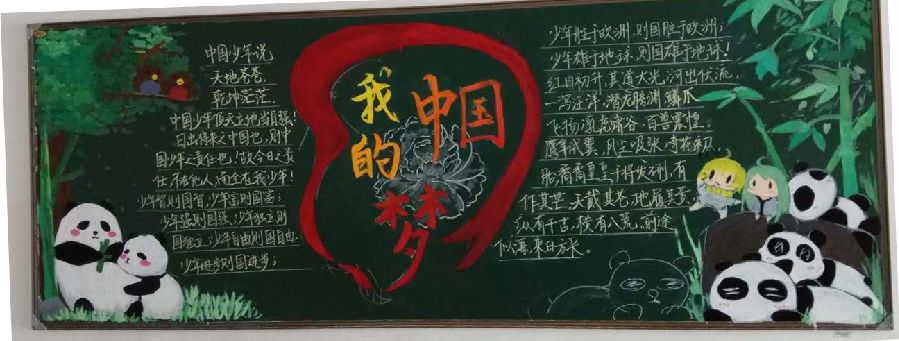 中国少年说
天地苍苍,
乾坤茫茫.
中国少年顶天立地当自强!
日出将来之中国也,则中
国少年之责任也!故今日之责
任,不在他人,而全在我少年!
少年智则国智,少年富则国富;
少年强则国强,少年独立则
国独立,少年自由则国自由.
少年进步则国进步;
我的中国梦
少年胜于欧洲,则国胜于欧洲;
少年雄于地球,则国雄于地球!
红日初升,其道大光,河出伏流,
一泻汪洋.潜龙腾渊,鳞爪
飞扬,乳虎啸谷,百兽震惶.
鹰隼试翼,风尘吸张,奇花初
胎,矞矞皇皇,干将发硎,有
作其芒.天戴其苍,地履其黄.
纵有千古,横有八荒.前途
似海,来日方长。